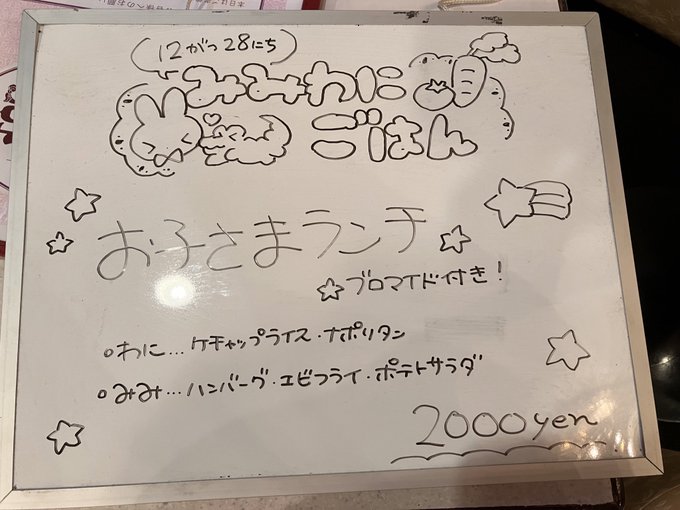 12がつ28にち
みみわに
ごはん
お子さまランチ
ブロマイド付き!
わに…ケチャップライス・ナポリタン
みみ…ハンバーグ・エビフライ・ポテトサラダ
2000yen